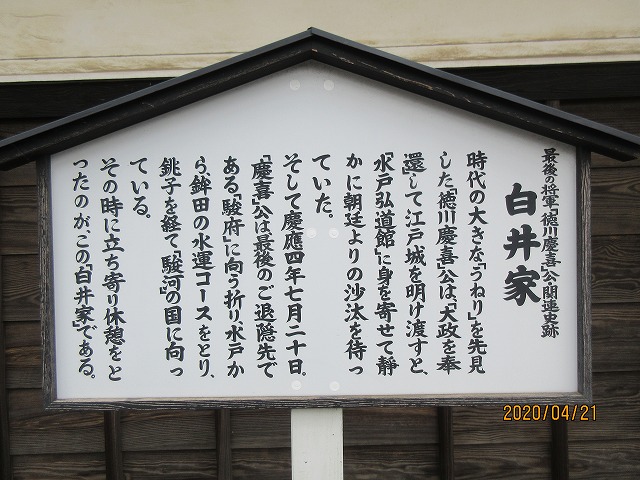 最後の将軍「徳川慶喜」公関連史跡
白井家
時代の大きな「うねり」を先見
した「徳川慶喜」公は、「大政を奉
還」して江戸城を明け渡すと、
「水戸弘道館」に身を寄せて静
かに朝廷よりの沙汰を待っ
ていた。
そして慶應四年七月二十日、
「慶喜」公は最後のご退隠先で
ある「駿府」に向う折り、水戸か
ら、鉾田の水運コースをとり、
銚子を経て「駿河」の国に向っ
ている。
その時に立ち寄り休憩をと
ったのが、この「白井家」である。
2020/04/21